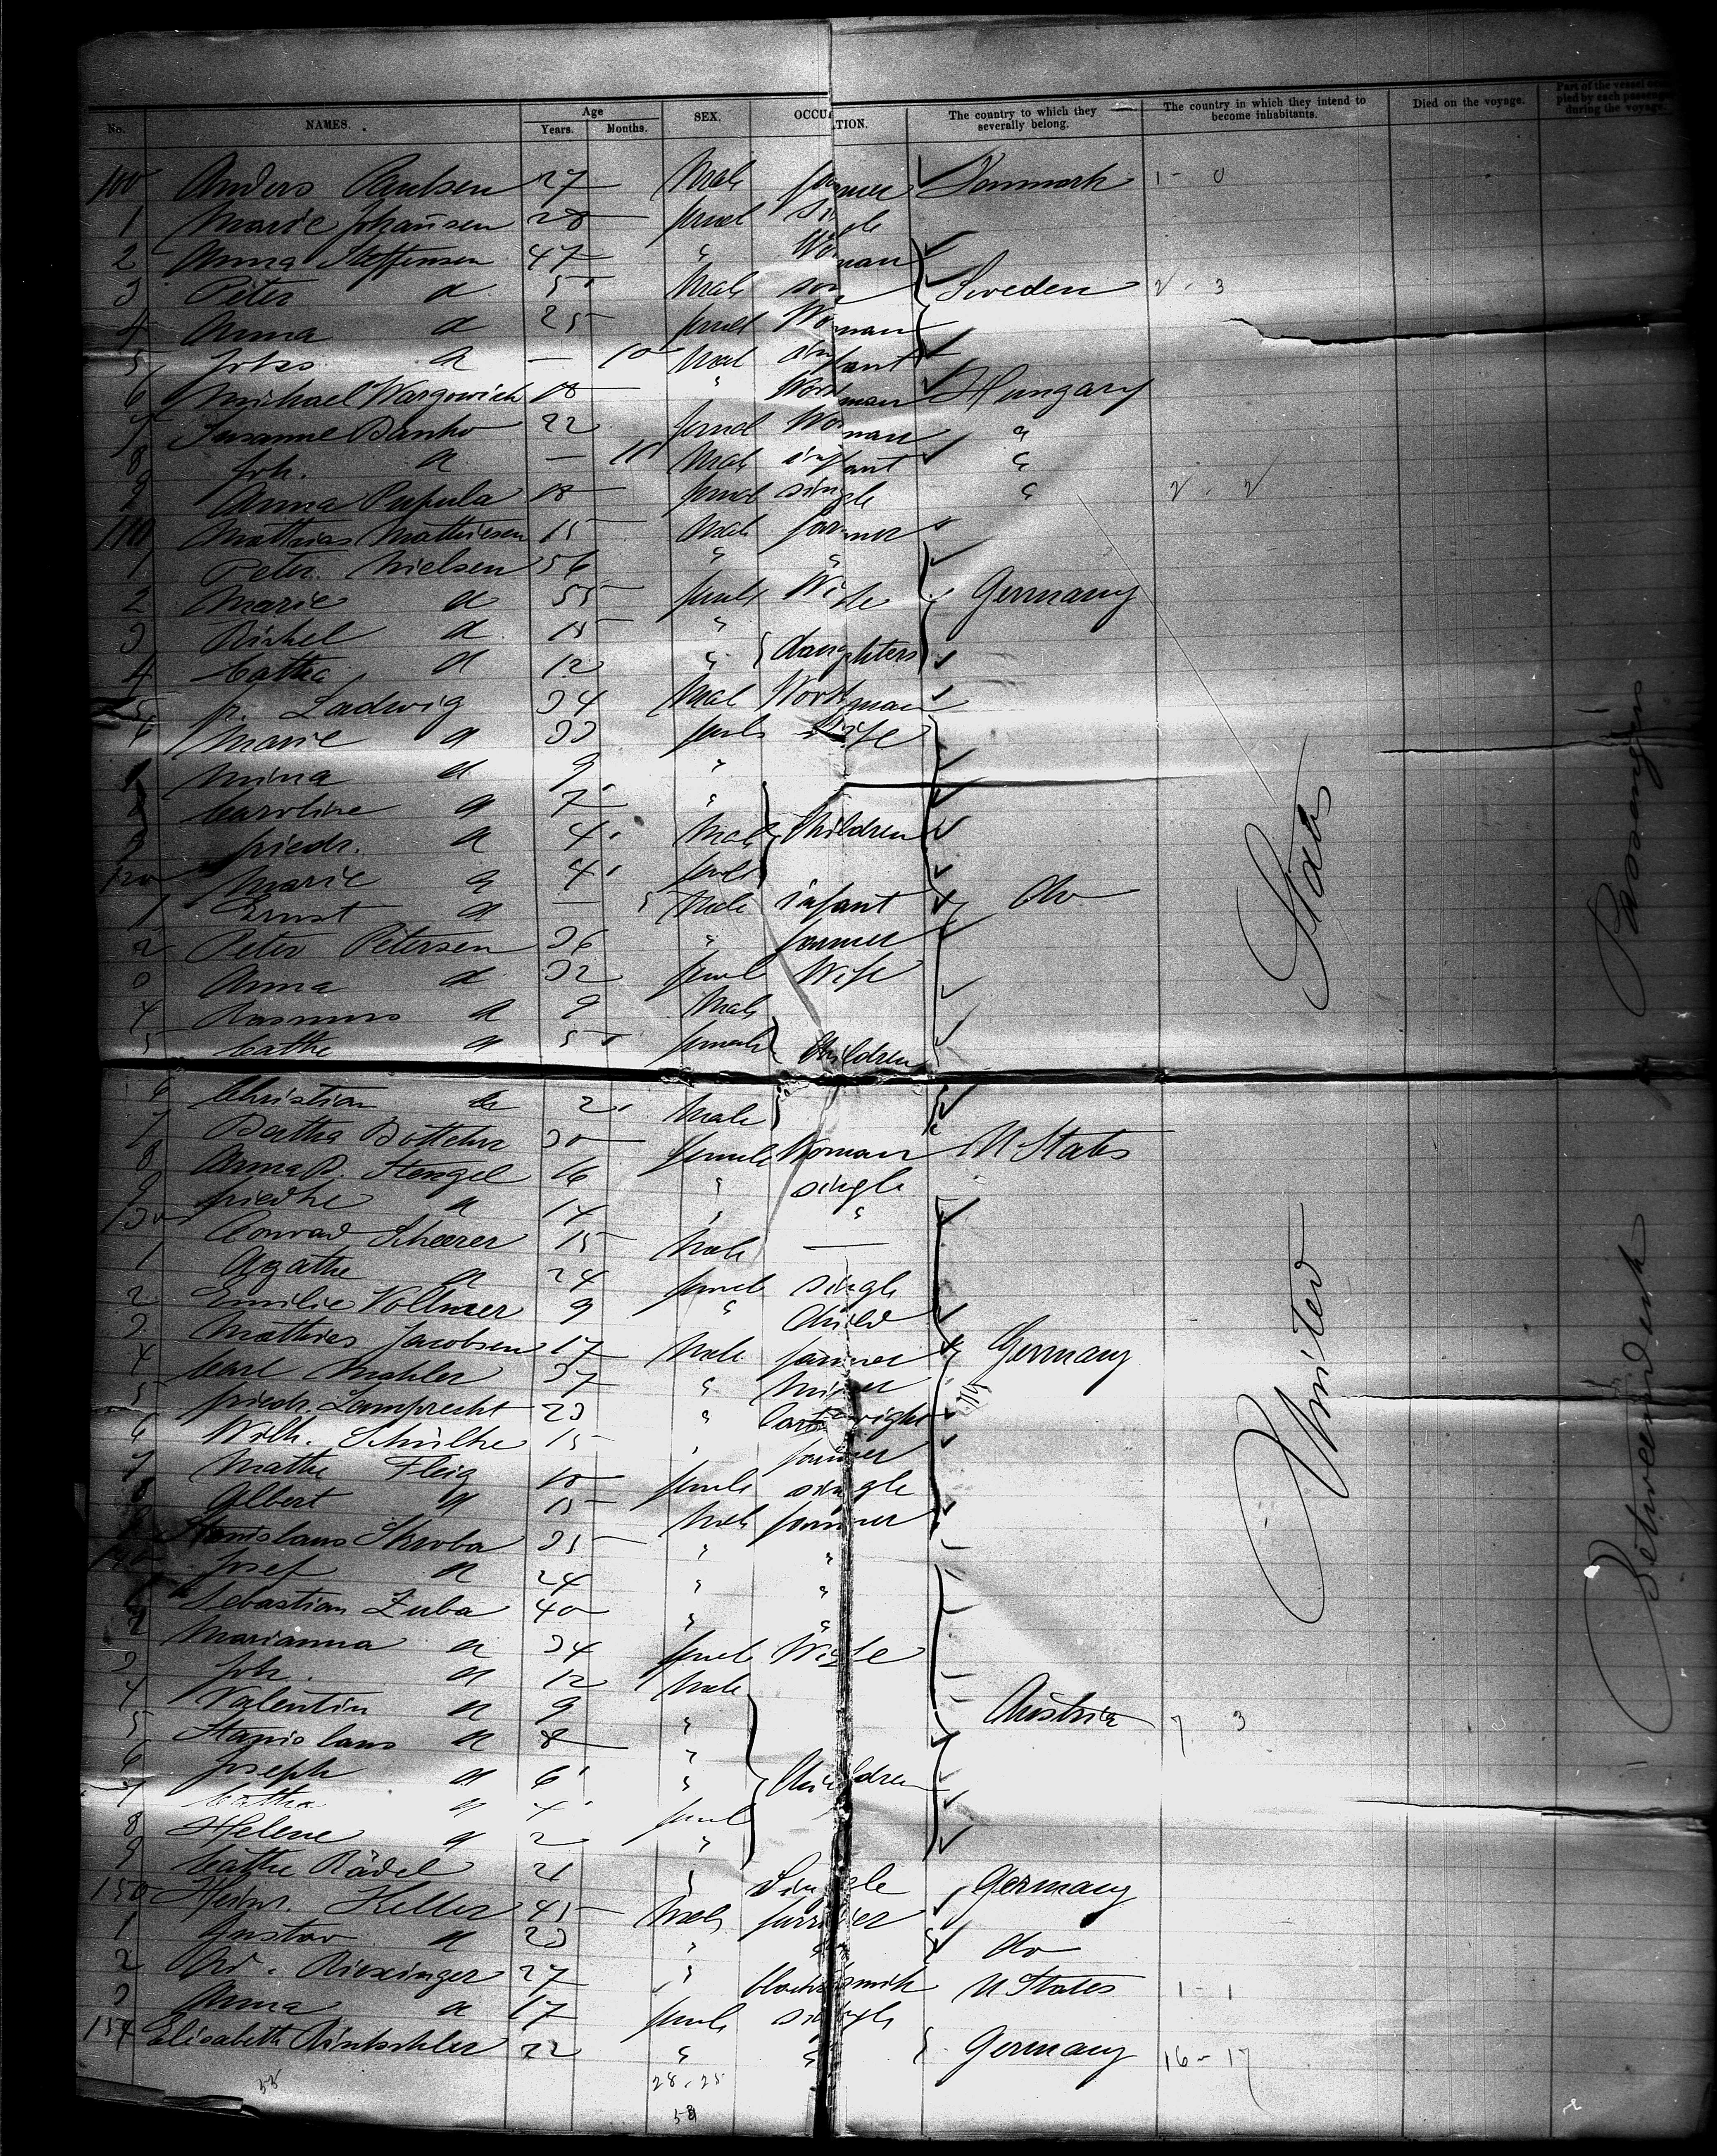 No. NAMES. Age Years. Months. SEX. OCCUPATION. The country to which they severally belong. The country in which they intend to become inhabitants. Died on the voyage. Part of the vessel occupied by each passenger during the voyage.
100 Anders Paulsen 27 Male farmer Danmark 1 - 0
1 Marie Johansen 28 femal single
2 Anna Steffensen 47 " Woman
3 Peter d 5 Male son Sweden 2 - 3
4 Anna d 25 femal Woman
5 Johs d — 10 Mal infant
6 Michael Wargowich 18 " Workman Hungary
7 Susanne Banko 22 femal Woman "
8 Joh. d — 11 Male infant "
9 Anna Pupula 18 femal single " 2 - 2
110 Matthias Mathiesen 15 Male farmer
1 Peter Nielsen 56 " "
2 Marie d 55 femal Wife Germany
3 d 15 "
4 Catha d 12 " daughters
5 fr. Ladwig 34 Mal Workman
6 Marie d 33 femal Wife
7 Mina d 9 "
8 Caroline d 7 "
9 friedr. d 4 Male Children
120 Marie d 4 femal
1 Ernst d — 5 Male infant do
2 Peter Petersen 36 " farmer
3 Anna d 32 femal Wife
4 Rasmus d 9 Male
5 Cathe d 5 female Children
6 Christian d 2 Male
7 Bertha Böttcher 30 female Woman U States
8 Anna B. Stengel 16 " single
9 friedke d 14 " "
130 Conrad Scheerer 15 Male —
1 Agathe d 24 femal single
2 Emilie Vollmer 9 " Child
3 Mathias Jacobsen 17 Male farmer Germany
4 Carl Mahler 37 " Miner
5 friedr. Lamprecht 23 " Cartwright
6 Wilh. Schultze 15 " farmer
7 Mathe Fleig 18 femal single
8 Albert d 15 Male farmer
9 Stanislaus Skroba 35 " "
140 Josef d 24 " "
1 Sebastian Zuba 40 " "
2 Marianna d 34 femal Wife
3 Joh. d 12 Male
4 Valentin d 9 " Austria 7 3
5 Stanislaus d 8 "
6 Joseph d 6 " Children
7 Catha d 4 femal
8 Helene d 2 "
9 Cathe Rädel 21 " Single Germany
150 Heinr. Keller 45 Male furrier
1 Gustav d 23 " do
2 Ad. Riexinger 27 " blacksmith U States 1 - 1
3 Anna d 17 femal single
154 Elisabeth 22 " " Germany 16 - 17
55 28 . 25
53
United States
Betweendeck Passengers